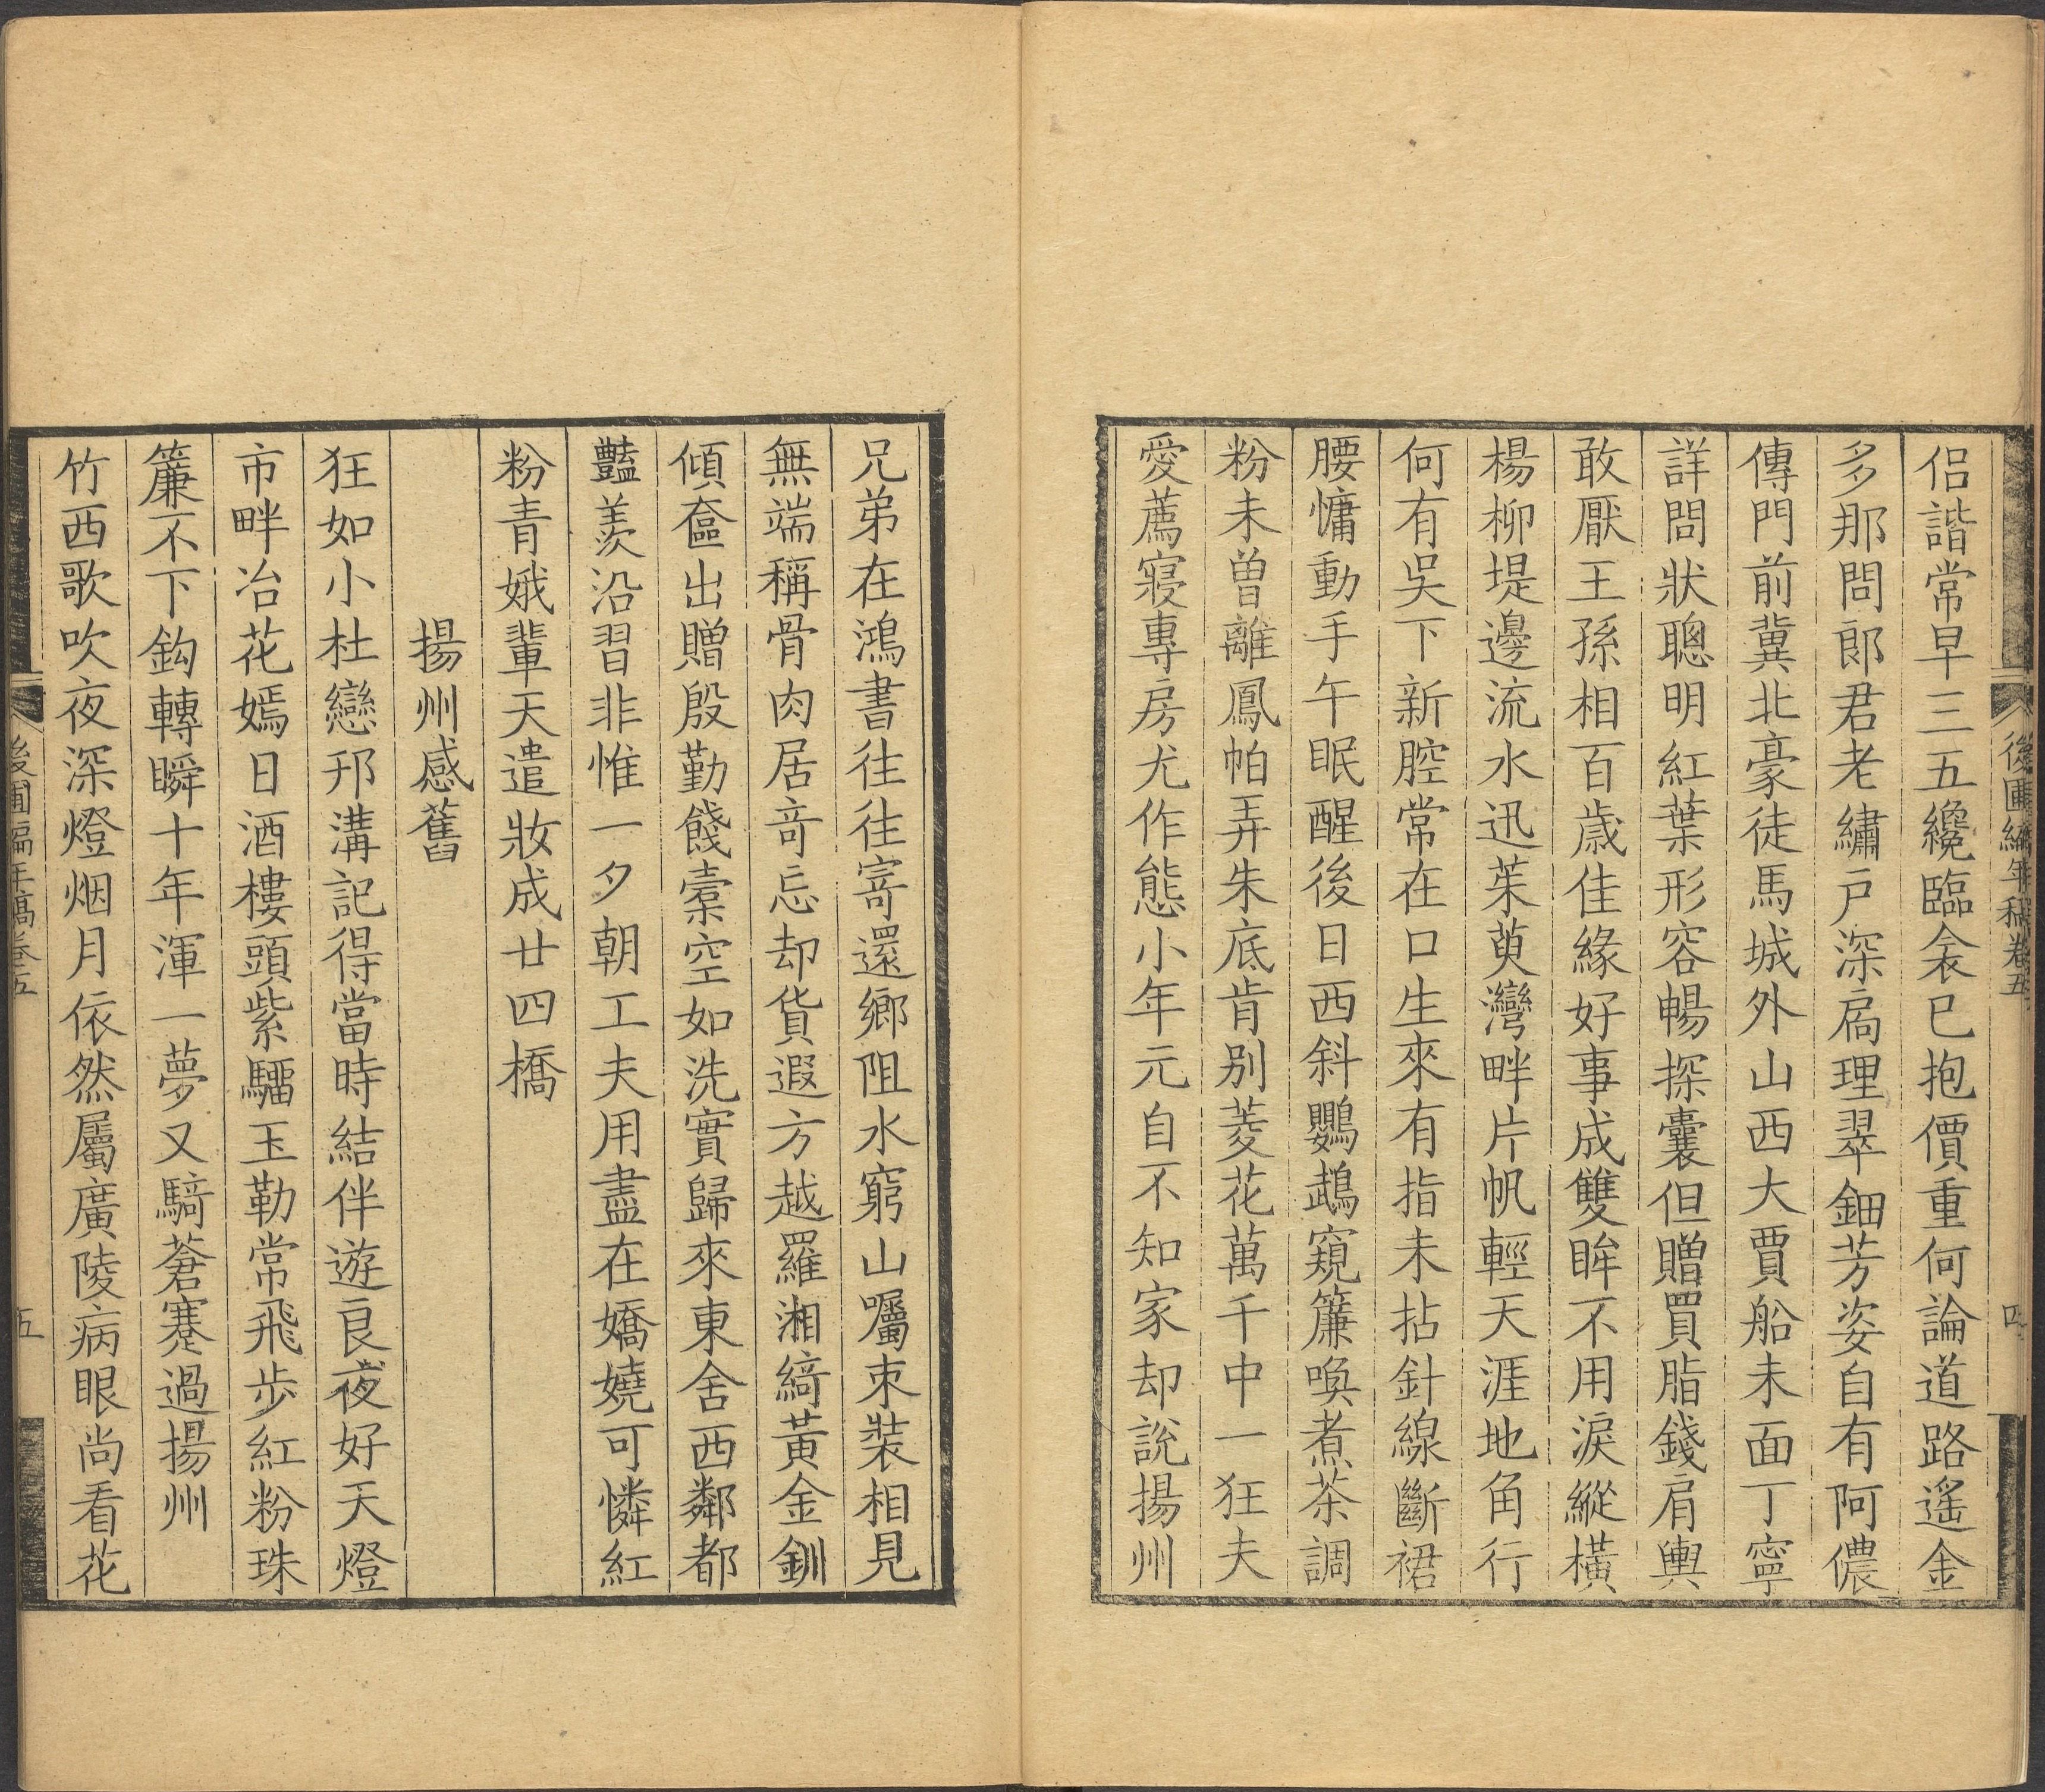 後圃編年稿卷五
四
侣諧常早三五纔臨衾已抱價重何論道路遙金
多那問郎君老繡戶深扃理翠鈿芳姿自有阿儂
傳門前冀北豪徒馬城外山西大賈船未面丁寧
詳問狀聰明紅葉形容暢探囊但贈買脂錢肩輿
敢厭王孫相百歲佳緣好事成雙眸不用淚縱橫
楊柳堤邊流水迅茱萸灣畔片帆輕天涯地角行
何有吳下新腔常在口生來有指未拈針線斷裙
腰慵動手午眠醒後日西斜鸚鵡窺簾喚煮茶調
粉未曾離鳳帕弄朱底肯别菱花萬千中一狂夫
愛薦寢專房尤作態小年元自不知家却說揚州
兄弟在鴻書往往寄還鄉阻水窮山囑束裝相見
無端稱骨肉居竒忘却貨遐方越羅湘綺黃金釧
傾奩出贈殷勤餞橐空如洗實歸來東舍西鄰都
豔羨沿習非惟一夕朝工夫用盡在嬌嬈可憐紅
粉青娥輩天遣妝成廿四橋
揚州感舊
狂如小杜戀邗溝記得當時結伴遊良夜好天燈
市畔冶花嫣日酒樓頭紫騮玉勒常飛步紅粉珠
簾不下鈎轉瞬十年渾一夢又騎蒼蹇過揚州
竹西歌吹夜深燈烟月依然屬廣陵病眼尚看花
後圃編年稿卷五
五